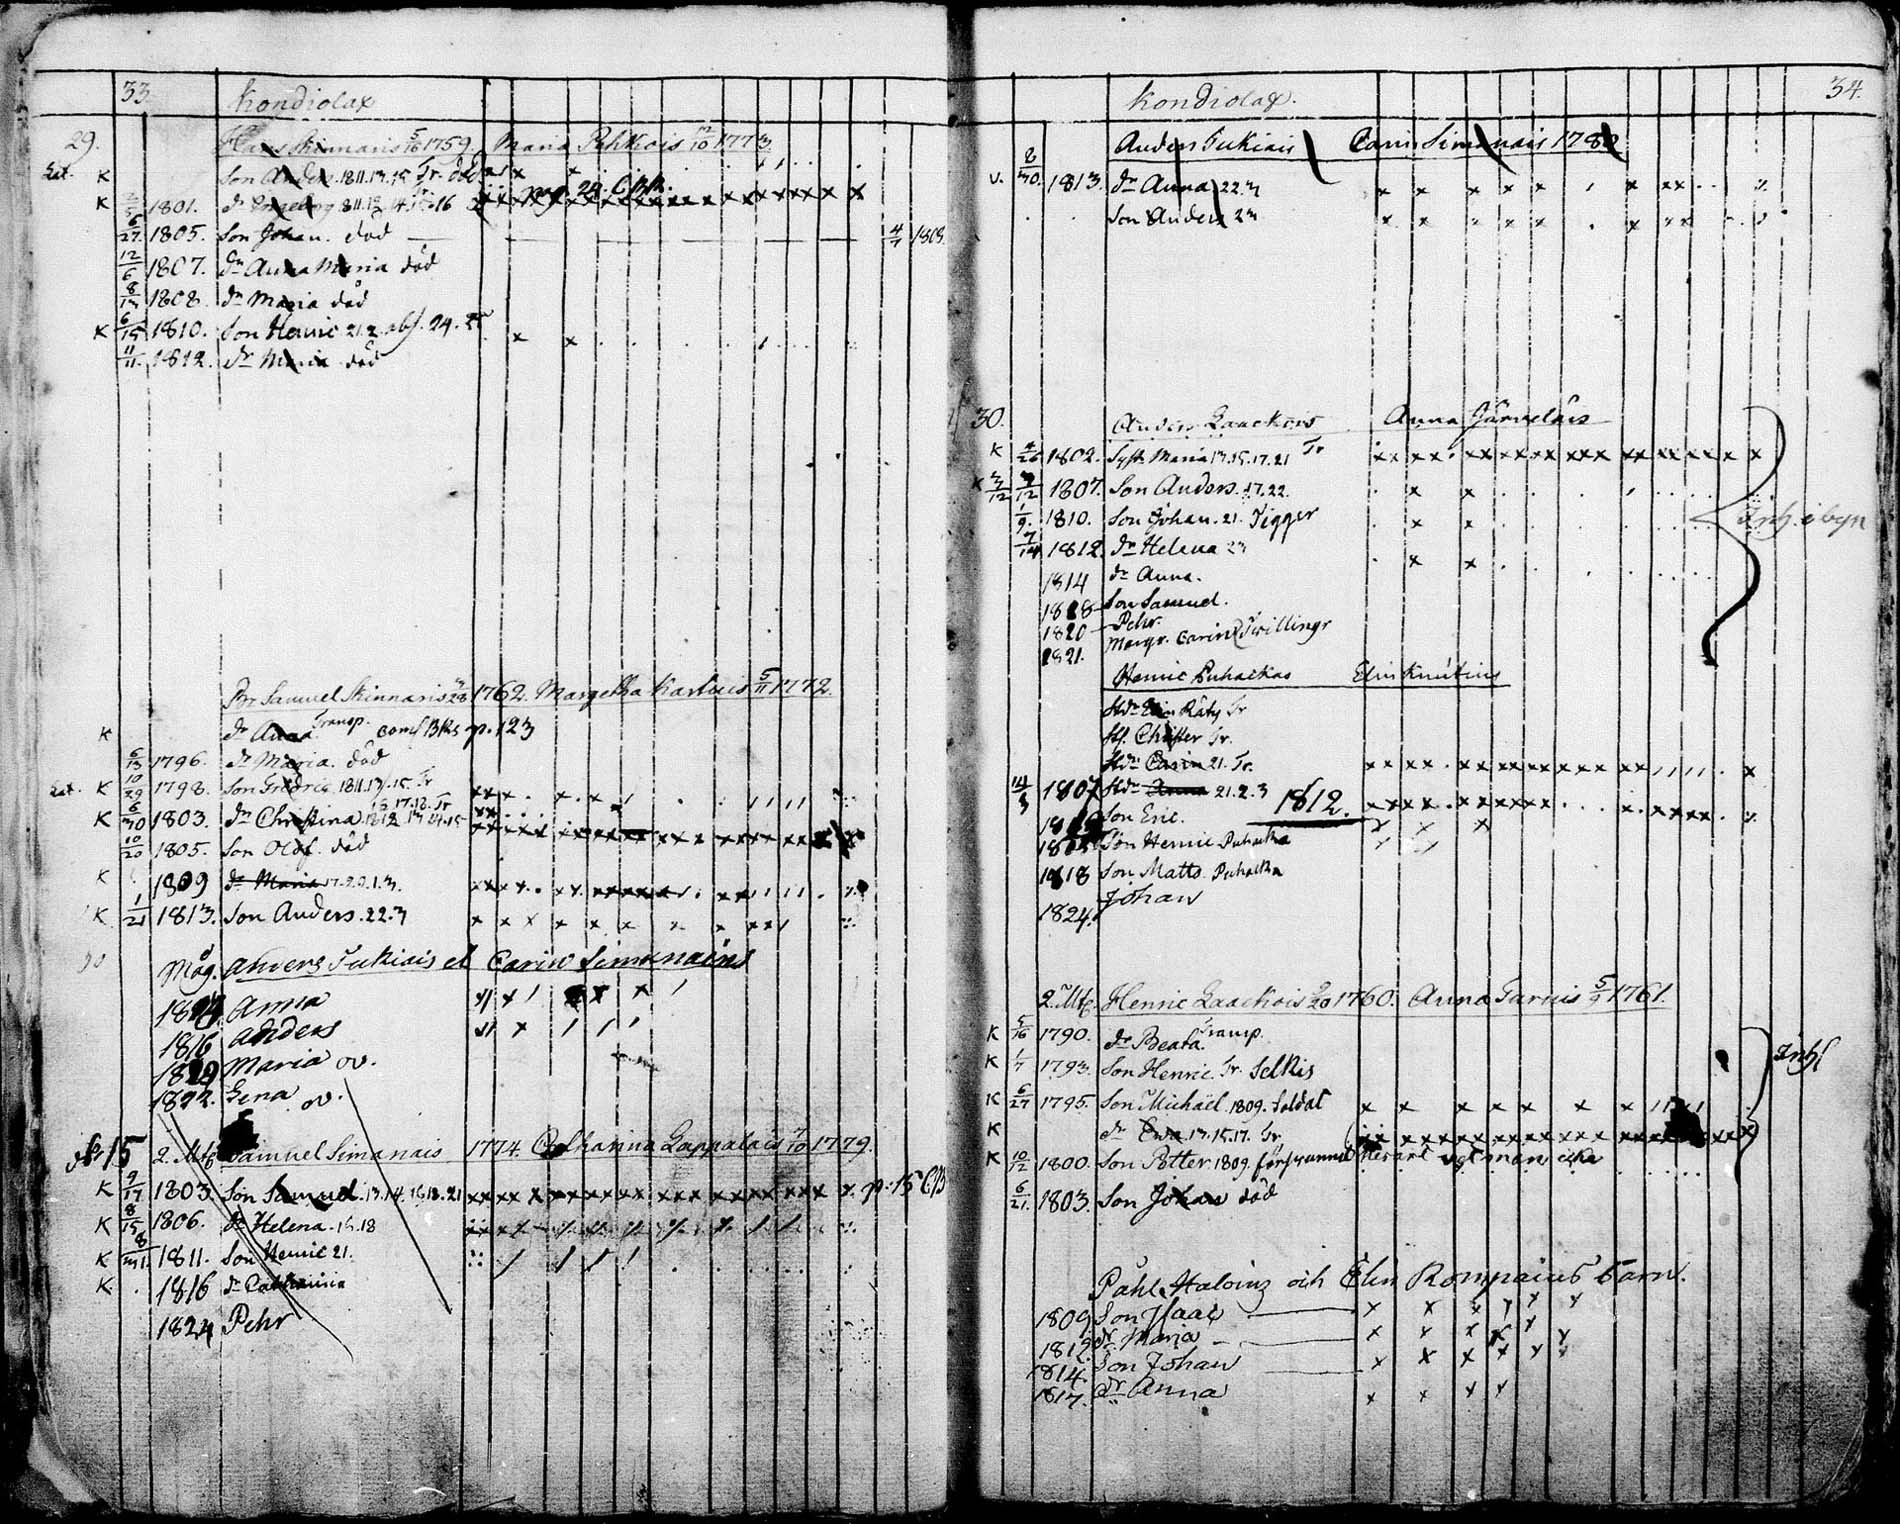 33 Kondiolax
29. Hans Skinnaris 5/10 1759. Maria Pehkois 12/10 1773.
K Son Anders. 1811.13.15 Tr. död
K 1801. dr Ingeborg 1811.12.14.15.16 pag. 24. CBR.
6/27 1805. Son Johan. död 4/7 1808.
12/6 1807. dr Anna Maria död
8/13 1808. dr Maria död
K 6/15 1810. Son Henric 21.2. abs. 24. 25
11/11. 1812. dr Maria död
Br Samuel Skinnaris 1762. Margetha Kartuis 5/11 1772.
K dr Anna Transp. Comf Bks p. 123
6/13 1796. dr Maria. död
K 10/29 1798. Son Fredric 1811.13.15. Tr
K 6/30 1803. dr Christina 1812.13.14.15 16.17.18. Tr
10/20 1805. Son Olof. död
K 1809 dr Maria 17.20.1.3.
K 1/21 1813. Son Anders. 22.3
Måg. Anders Tukiais et Carin Simonains
1814 Anna
1816 Anders
1819 Maria ov.
1822. Lena ov.
15 2. Mtl Samuel Simanais 1774. Catharina Lappalais 7/10 1779.
K 9/17 1803. Son Samuel. 13.14.16.18.21 p. 15 CB
K 8/15 1806. dr Helena. 15.18
K 8/31. 1811. Son Henric 21.
K. 1816 dr Catharina
1824 Pehr
Kondiolax. 34.
Anders Tukiais Carin Simonais 1780
v. 8/30. 1813. dr Anna 22.3
Son Anders 23
30. Anders Laackois Anna Järveläis
K 4/26 1802. Syst. Maria 13.15.17.21 Tr
K 3/12 1807. Son Anders. 17.22.
1/9. 1810. Son Johan. 21. Tigger
7/14 1812. dr Helena 23
Inh. i byn
1814 dr Anna.
1818 Son Samuel.
1820 Pehr.
1821. Margr. Carin Twillingr
Henric Puhackas Elin Knutius
Stdr Elin Räty Tr
Sts. Christer Tr.
Stdr Carin 21. Tr.
14/3 1807 Stdr Anna 21.2.3
Son Eric. 1812.
Son Henric Puhacka
1818 Son Matts. Puhacka
1824. Johan
2. Mtl. Henric Laackois 1760. Anna Tarvis 5/9 1761.
K 5/16 1790. dr Beata. Transp.
K 1/7 1793. Son Henric. Tr. Selkis
Inhs
K 6/27 1795. Son Michael. 1809. Soldat
K dr Ewa 13.15.17. Tr.
K 10/2 1800. Son Petter 1809. försvunnit hvart vet man icke
6/21. 1803. Son Johan död
Påhl Haloinz och Elin Rompains barn.
1809 Son Isaac
1812 dr Maria
1814. Son Johan
1817. dr Anna